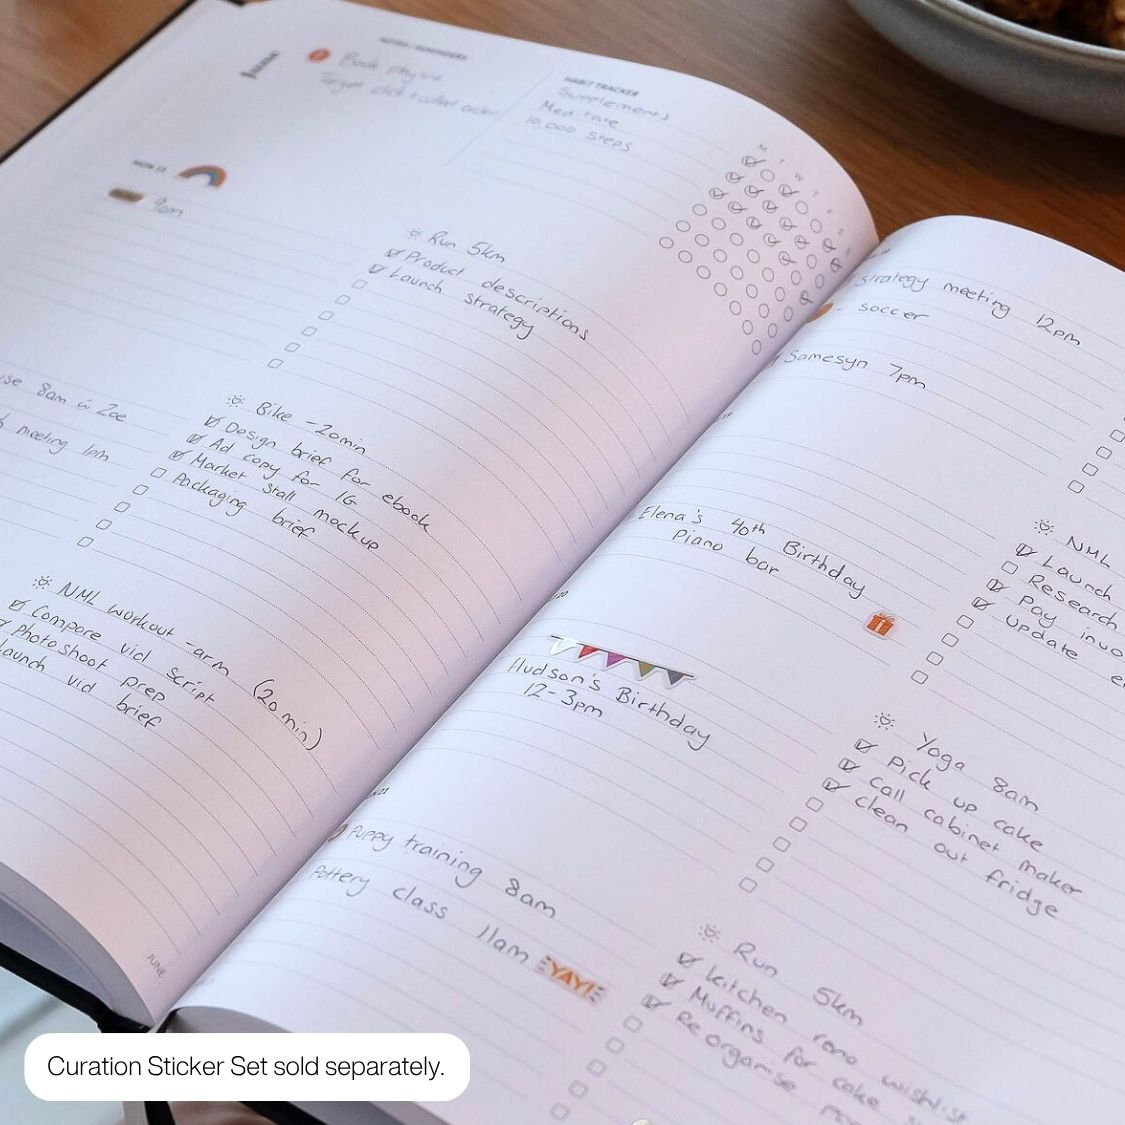 NOTES + REMINDERS
June
Book
Target click + collect order
HABIT TRACKER
Supplements
Meditate
10,000 Steps
M T W T
9am
Run 5km
Product descriptions
Launch strategy
8am w Zoe
meeting 1pm
Bike - 20min
Design brief for ebook
Ad copy for IG
Market stall mockup
Packaging brief
NML workout - arm (20 min)
Compare vid script
Photoshoot prep
Launch vid brief
JUNE
Strategy meeting 12pm
- soccer
Samesyn 7pm
Elena's 40th Birthday
Piano bar
NML
Launch
Research
Pay
update
Hudson's Birthday
12-3pm
Yoga 8am
Pick up cake
Call cabinet maker
Clean out fridge
Puppy training 8am
Pottery class 11am
YAY!
Run 5km
Kitchen reno wishlist
Muffins for cake
Reorganise
Curation Sticker Set sold separately.